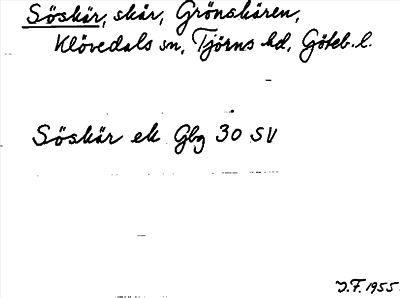 Söskär, skär, Grönskären,
Klövedals sn, Tjörns hd, Göteb. l.
Söskär ek Gbg 30 SV
J.F. 1955